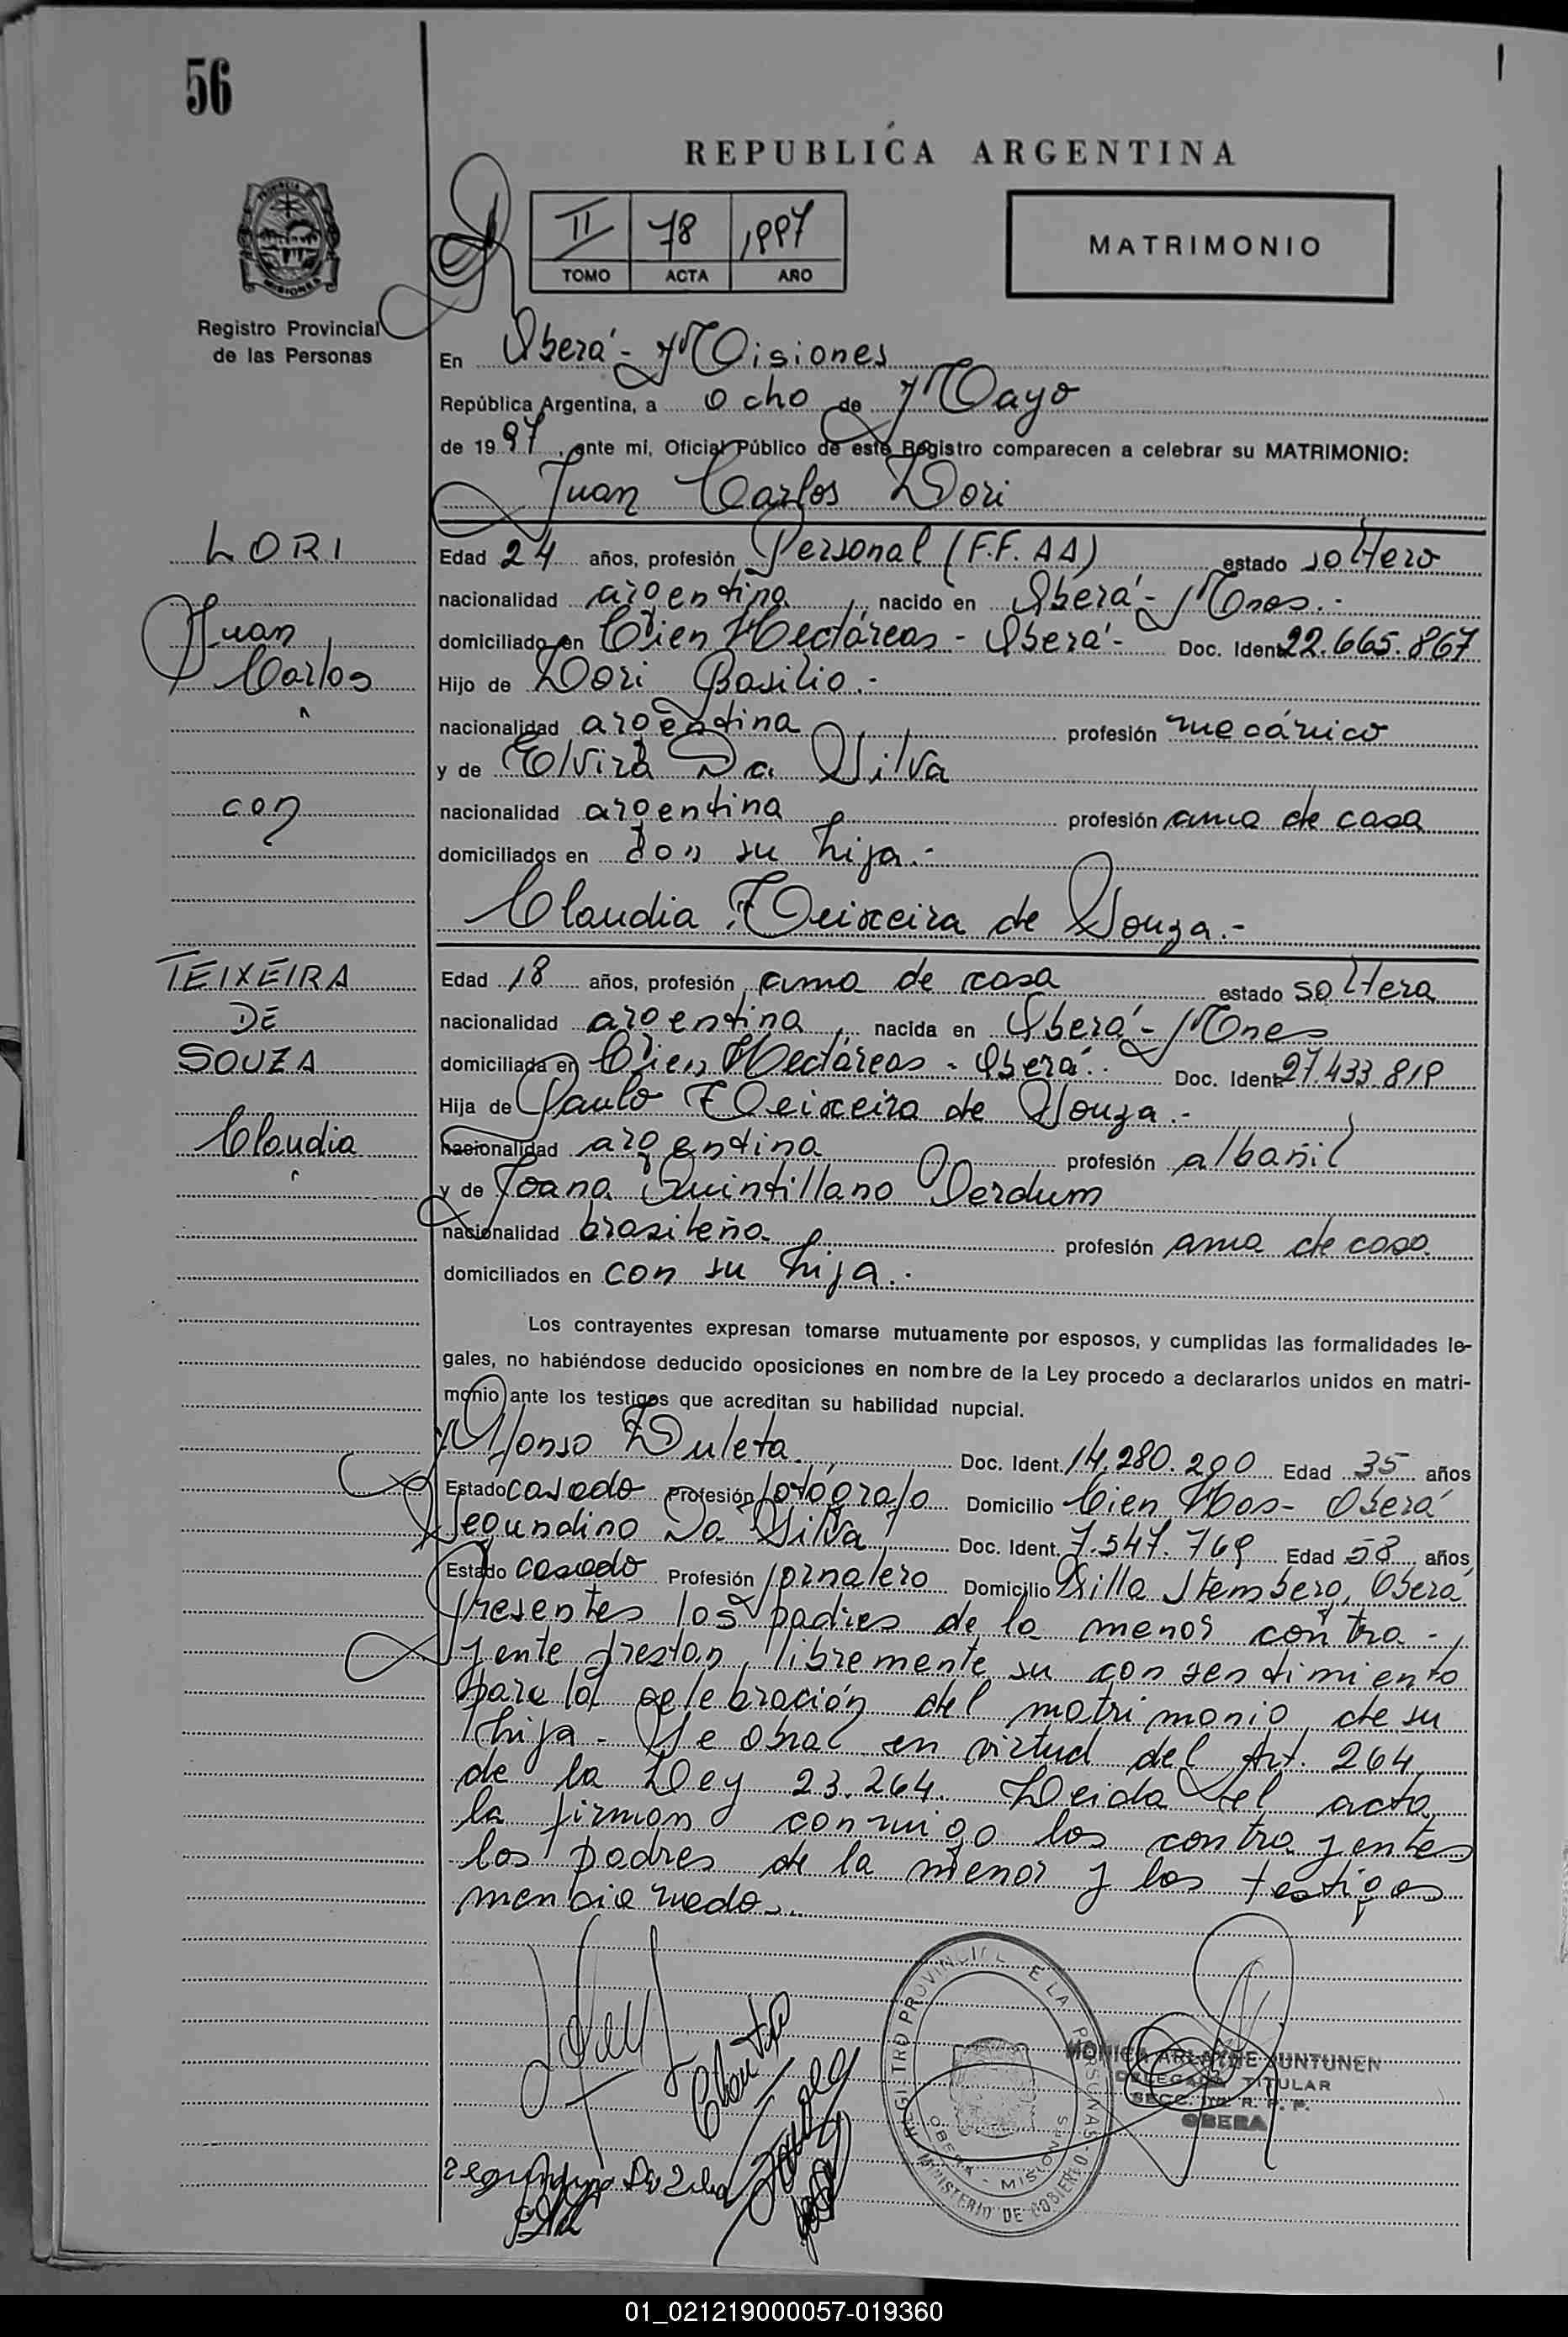 56
REPUBLICA ARGENTINA
II 78 1997
TOMO ACTA AÑO
MATRIMONIO
PROVINCIA
MISIONES
Registro Provincial
de las Personas
En Oberá - Misiones
República Argentina, a ocho de Mayo
de 1997, ante mi, Oficial Público de este Registro comparecen a celebrar su MATRIMONIO:
Juan Carlos Lori
LORI
Juan
Carlos
con
TEIXEIRA
DE
SOUZA
Claudia
Edad 24 años, profesión Personal (F.F.AA) estado soltero
nacionalidad argentina, nacido en Oberá - Mnes.-
domiciliado en Cien Hectáreas - Oberá - Doc. Ident. 22.665.867
Hijo de Lori Basilio.-
nacionalidad argentina profesión mecánico
y de Elvira Da Silva
nacionalidad argentina profesión ama de casa
domiciliados en con su hija.-
Claudia Teixeira de Souza.-
Edad 18 años, profesión ama de casa estado soltera
nacionalidad argentina, nacida en Oberá - Mnes
domiciliada en Cien Hectáreas - Oberá.- Doc. Ident. 27.433.819
Hija de Paulo Teixeira de Souza.-
nacionalidad argentina profesión albañil
y de Joana Quintillano Verdum
nacionalidad brasileña profesión ama de casa
domiciliados en con su hija.-
Los contrayentes expresan tomarse mutuamente por esposos, y cumplidas las formalidades le-
gales, no habiéndose deducido oposiciones en nombre de la Ley procedo a declararlos unidos en matri-
monio ante los testigos que acreditan su habilidad nupcial.
Alfonso Duleta Doc. Ident. 14.280.290 Edad 35 años
Estado casado Profesión fotógrafo Domicilio Cien Has - Oberá
Segundino Da Silva Doc. Ident. 7.547.769 Edad 58 años
Estado casado Profesión jornalero Domicilio Villa Stemberg, Oberá
Presentes los padres de la menor contra-
yente prestan libremente su consentimiento
para la celebración del matrimonio de su
hija - Se obra en virtud del Art. 264
de la Ley 23.264. Leida el acta
la firman conmigo los contrayentes
los padres de la menor y los testigos
mencionados.-
REGISTRO PROVINCIAL DE LAS PERSONAS
OBERA - MISIONES
MINISTERIO DE GOBIERNO
MONICA ARLAYNE JUNTUNEN
DELEGADA TITULAR
SECC. R. P. P.
OBERA
01_021219000057-019360